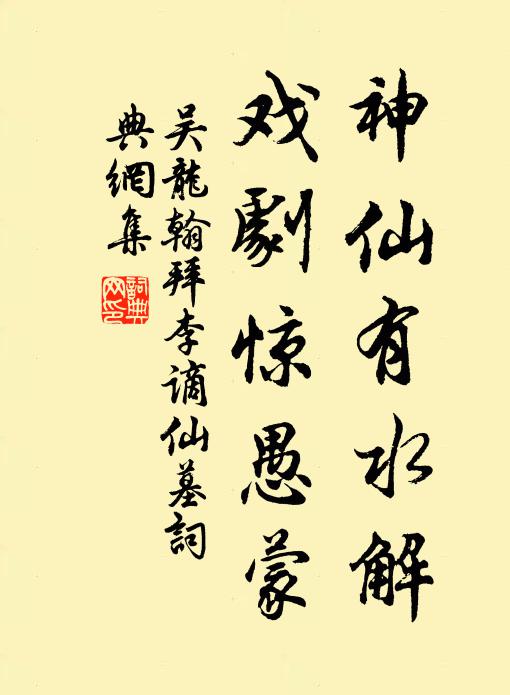 神仙有水解
戏劇惊愚蒙
吴龍翰拜李谪仙墓詞
典網集
詞典网印